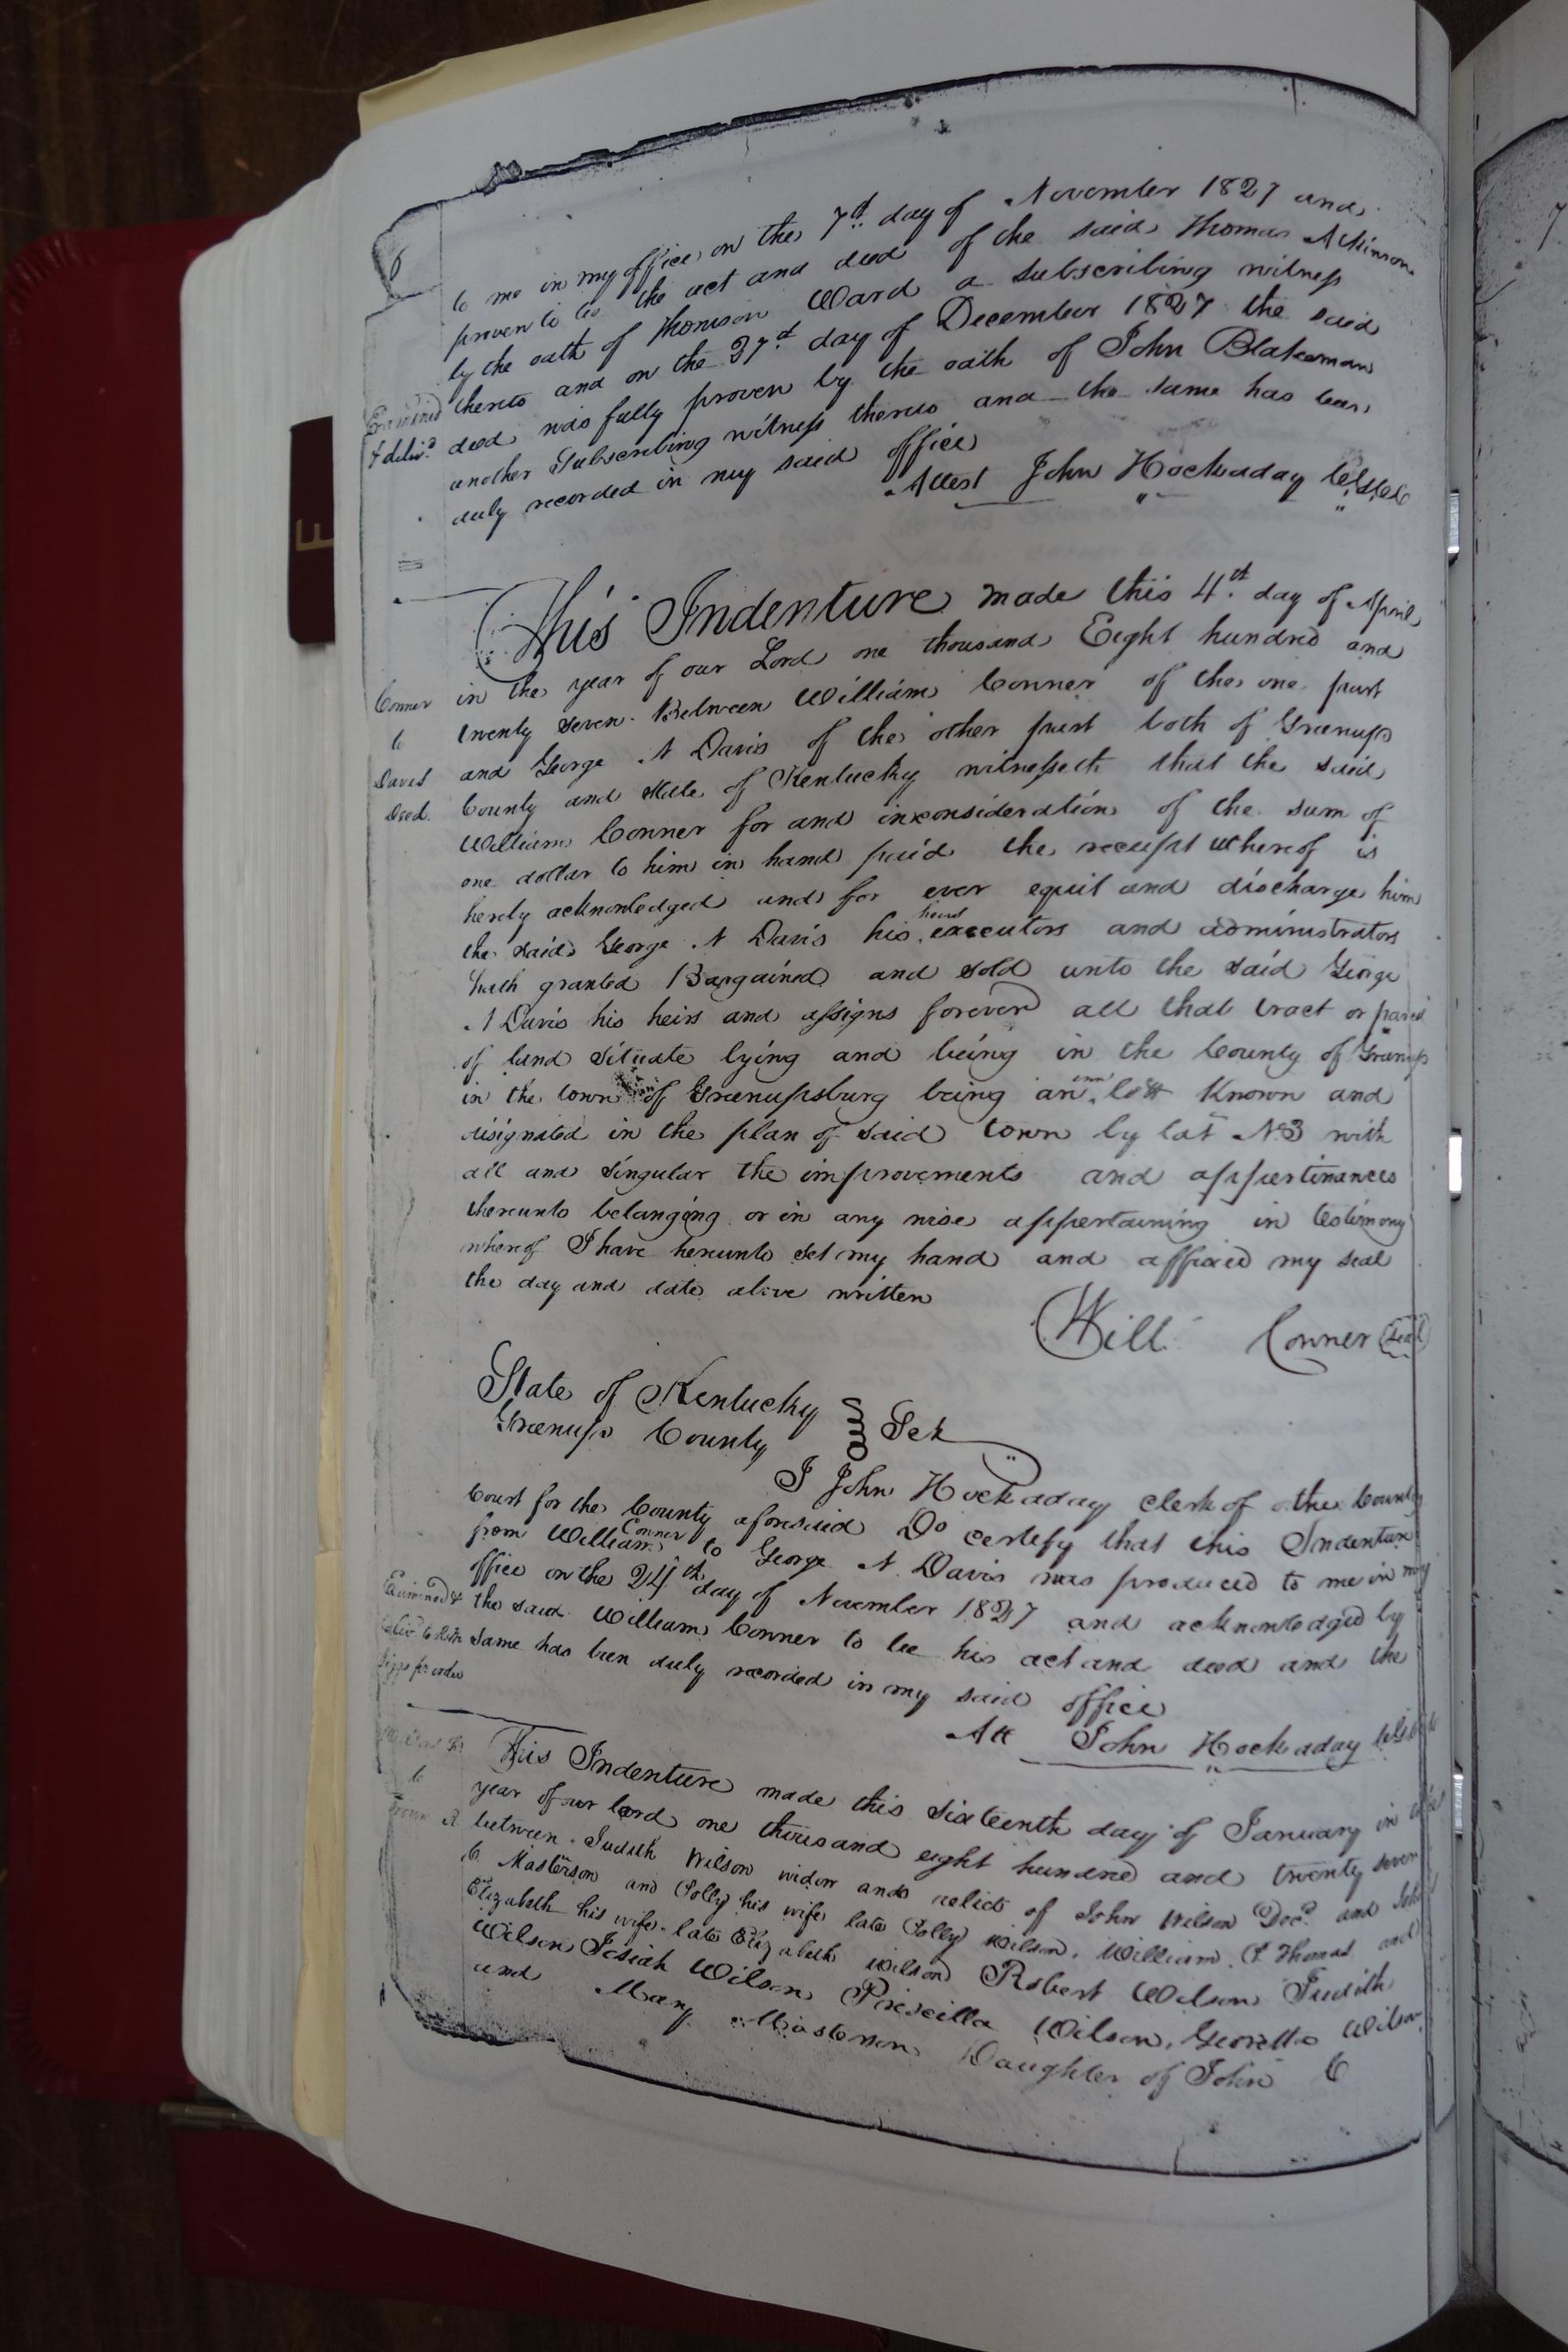 6
to me in my office on the 7th day of November 1827 and
proven to be the act and deed of the said Thomas Atkinson
by the oath of Thomson Ward a subscribing witness
thereto and on the 27th day of December 1827 the said
Examined
& delivd
deed was fully proven by the oath of John Blakeman
another Subscribing witness thereto and the same has been
duly recorded in my said office
Attest John Hockaday
This Indenture made this 4th day of April
in the year of our Lord one thousand Eight hundred and
Conner
to
Davis
Deed
twenty seven Between William Conner of the one part
and George N Davis of the other part both of Greenup
County and State of Kentucky witnesseth that the said
William Conner for and inconsideration of the sum of
one dollar to him in hand paid the receipt whereof is
hereby acknowledged and for ever equit and discharge him
the said George N Davis his heirs executors and administrators
hath granted Bargained and sold unto the said George
N Davis his heirs and assigns forever all that tract or parcel
of land situate lying and being in the County of Greenup
in the town of Greenupsburg being an inn lott Known and
disignated in the plan of said town by lot No 3 with
all and singular the improvements and appertinances
thereunto belanging or in any wise appertaining in testimony
whereof I have herunto set my hand and affixed my seal
the day and date above written
Will Conner Seal
State of Kentucky
Greenup County Sct
I John Hockaday clerk of the County
Court for the County aforesaid Do certify that this Indenture
from William Conner to George N. Davis was produced to me in my
office on the 24th day of November 1827 and acknowledged by
Examined &
the said William Conner to be his act and deed and the
same has been duly recorded in my said office
Att John Hockaday
This Indenture made this sixteenth day of January in the
to
year of our lord one thousand eight hundred and twenty seven
between Judith Wilson widow and relict of John Wilson Decd and John
C Masterson and Polly his wife late Polly Wilson, William P Thomas and
Elizabeth his wife late Elizabeth Wilson Robert Wilson Judith
Wilson Josiah Wilson Priscilla Wilson, Georetta Wilson
and Mary Masterson Daughter of John C